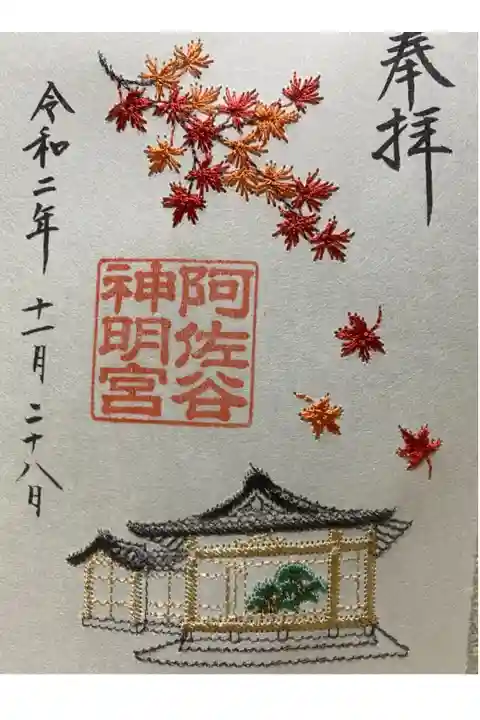 奉拝
阿佐谷
神明宮
令和二年 十一月 二十八日